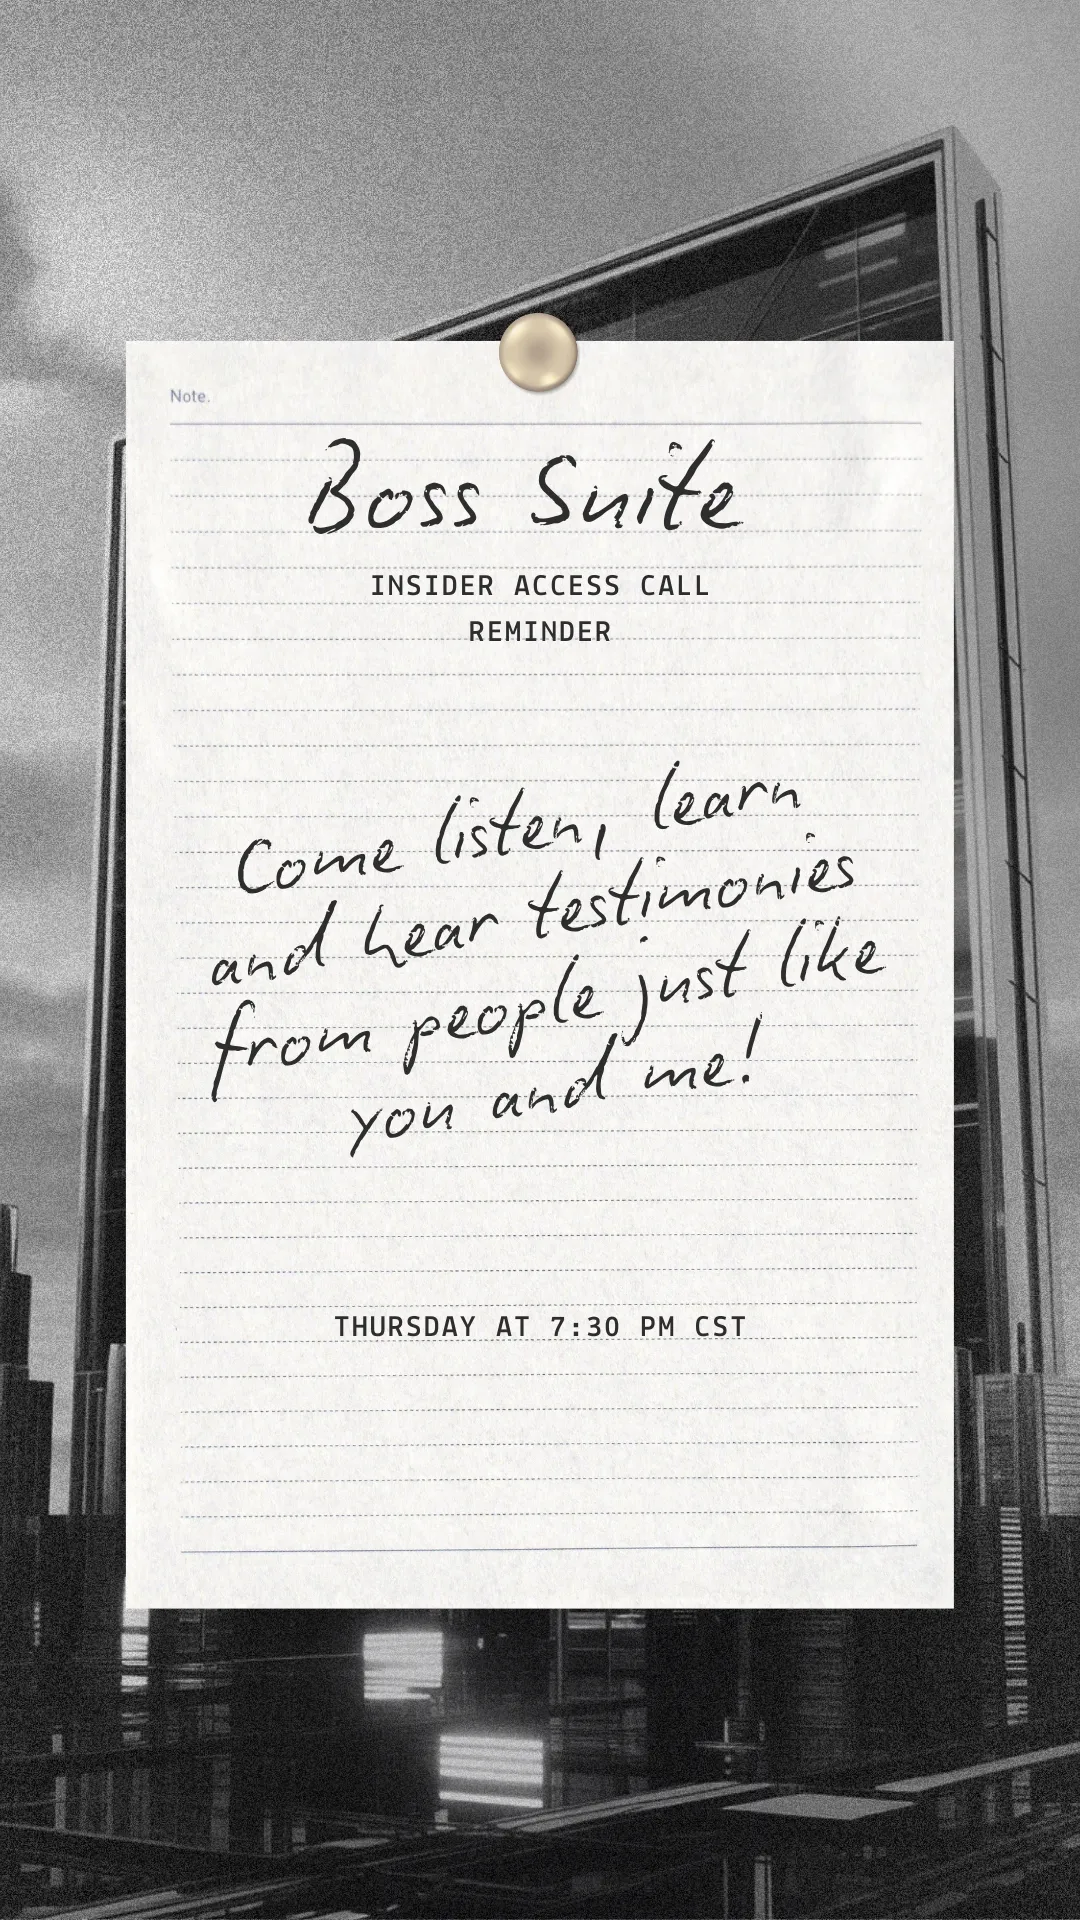 Note.
Boss Suite
INSIDER ACCESS CALL
REMINDER
Come listen, learn
and hear testimonies
from people just like
you and me!
THURSDAY AT 7:30 PM CST